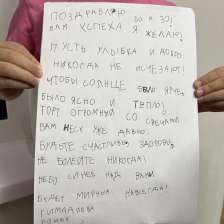 ПОЗДРАВЛЯЮ ВАС!
ВАМ УСПЕХА Я ЖЕЛАЮ!
ПУСТЬ УЛЫБКА И ДОБРО
НИКОГДА НЕ ИСЧЕЗАЮТ!
ЧТОБЫ СОЛНЦЕ ЯРЧЕ,
БЫЛО ЯСНО И ТЕПЛО!
ТОРТ ОГРОМНЫЙ СО СВЕЧАМИ
ВАМ УЖЕ ДАВНО.
БУДЬТЕ СЧАСТЛИВЫ, ЗДОРОВЫ,
НЕ БОЛЕЙТЕ НИКОГДА!
НЕБО СИНЕЕ НАД ВАМИ
БУДЕТ МИРНЫМ НАВСЕГДА!